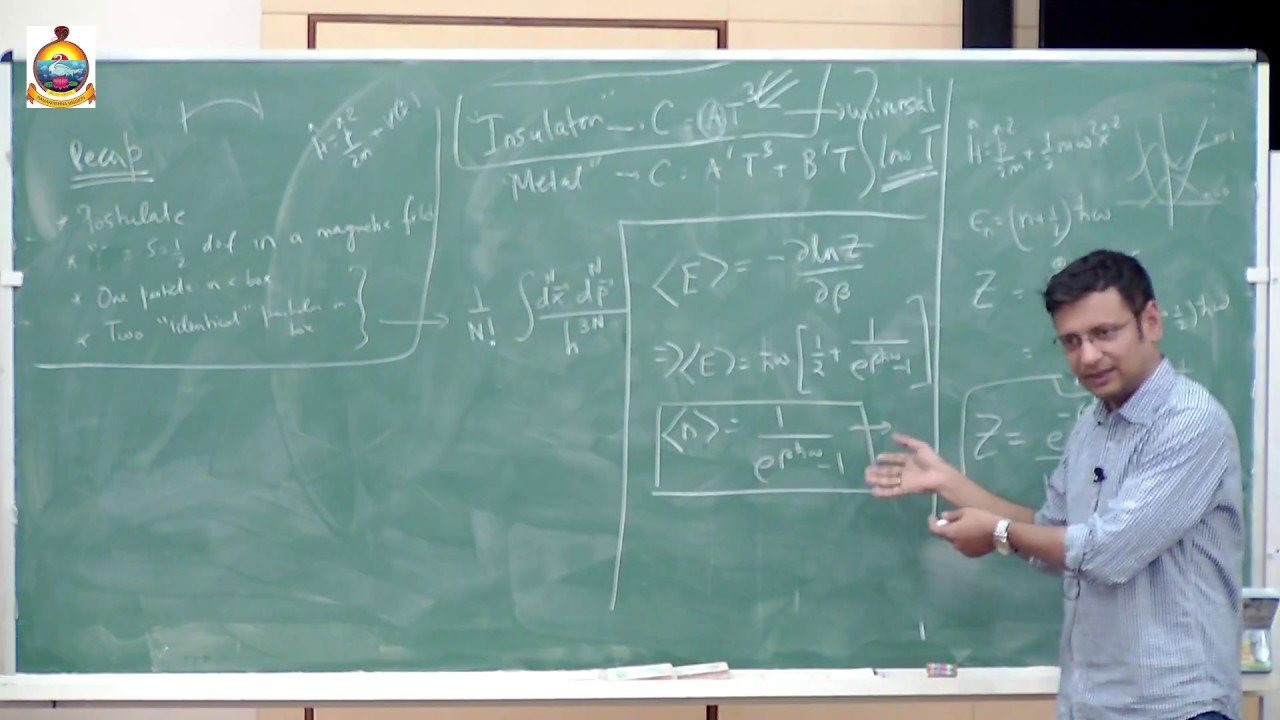 Recap
* Postulate
* "1" = S=1/2 dof in a magnetic field
* One particle in a box
* Two "identical" particles in box
ĥ = p̂²/2m + V(x̂)
"Insulator" → C = A T³ → universal
"Metal" → C = A' T³ + B' T
low T
1/N! ∫ d^N x⃗ d^N p⃗ / h^3N
⟨E⟩ = - ∂lnZ / ∂β
⇒ ⟨E⟩ = ħω [ 1/2 + 1 / (e^βħω - 1) ]
⟨n⟩ = 1 / (e^βħω - 1) →
ĥ = p̂²/2m + 1/2 mω²x̂²
ϵn = (n + 1/2) ħω
Z =
=
Z =